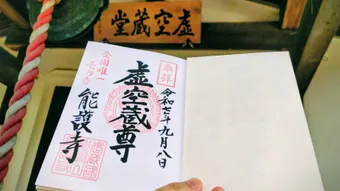 虚空蔵堂
奉拝
令和七年九月八日
虚空蔵尊
全国唯一
能護寺